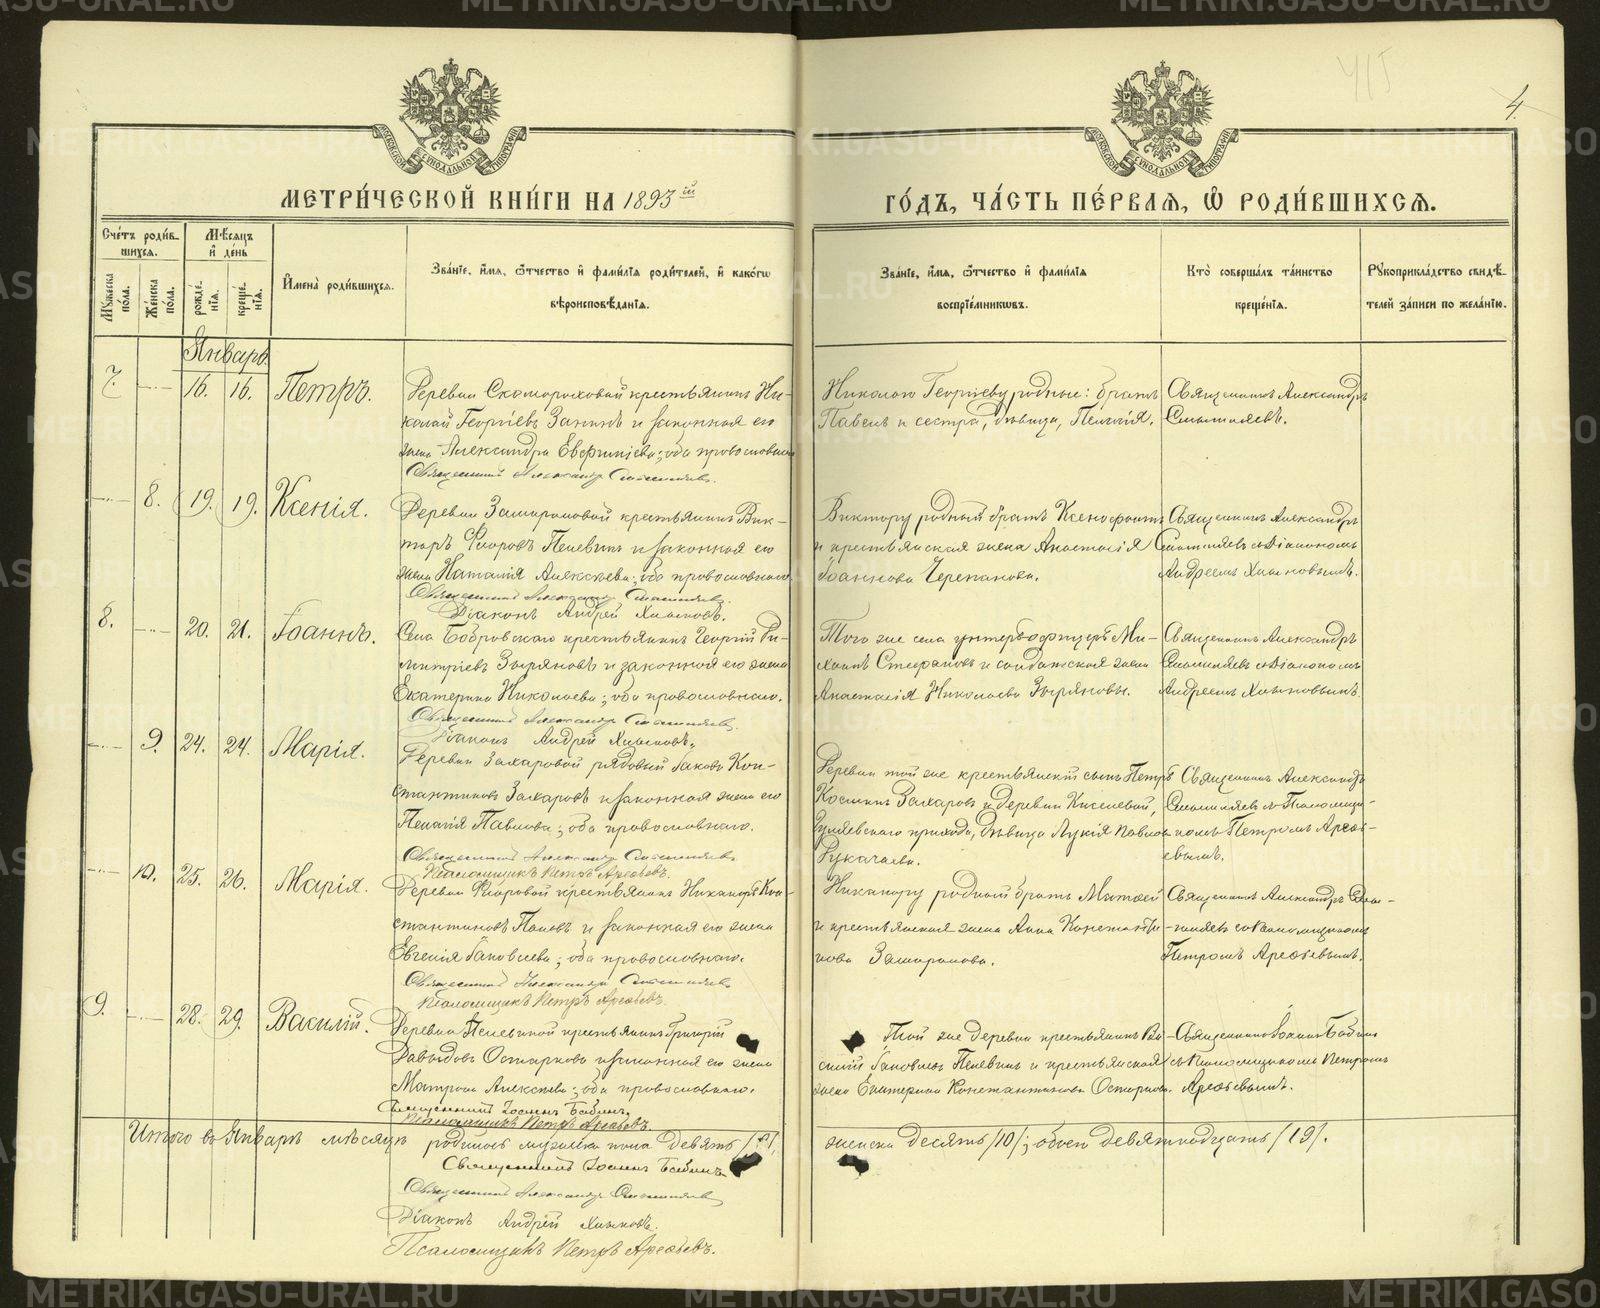 METRIKI.GASO-URAL.RU
415
4.
МОСКОВСКОЙ СѴНОДАЛЬНОЙ ТИПОГРАФІИ
МЕТРИ́ЧЕСКОЙ КНИ́ГИ НА 1893 й
ГО́ДЪ, ЧА́СТЬ ПЕ́РВАЯ, Ѽ РОДИ́ВШИХСЯ.
Сче́тъ роди́вшихся.
Мѣ́сяцъ и҆ де́нь
И҆мена̀ роди́вшихся.
Зва́нїе, и҆́мя, ѻ҆́тчество и҆ фами́лїа роди́телей, и҆ како́гѡ
вѣроисповѣ́данїя.
Зва́нїе, и҆́мя, ѻ҆́тчество и҆ фами́лїа
воспрїе́мникѡвъ.
Кто̀ соверша́лъ та́инство
креще́нїя.
Рукоприкла́дство свидѣ́-
телей за́писи по жела́нїю.
Му́жеска по́ла.
Же́нска по́ла.
рожде́нїя.
креще́нїя.
Январь.
7. 16. 16. Петръ.
Деревни Скомороховой крестьянинъ Ни-
колай Георгіевъ Занинъ и законная его
жена Александра; оба православнаго
Священникъ Александръ
Николаю Георгіеву родные: братъ
Павелъ и сестра, дѣвица, Пелагія.
Священникъ Александръ
8. 19. 19. Ксенія.
Деревни крестьянинъ Вик-
торъ Флоровъ Пелевинъ и законная его
жена Наталія Алексѣева; оба православнаго
Священникъ Александръ
Діаконъ Андрей Хлыновъ.
Виктору родный братъ Ксенофонтъ
и крестьянская жена Анастасія
Іоаннова Черепанова.
Священникъ Александръ
съ Діакономъ
Андреемъ Хлыновымъ.
8. 20. 21. Іоаннъ.
Села Бобровскаго крестьянинъ Георгій Ди-
митріевъ Зыряновъ и законная его жена
Екатерина Николаева; оба православнаго.
Священникъ Александръ
Діаконъ Андрей Хлыновъ.
Того же села унтеръ-офицеръ Ми-
хаилъ Стефановъ и солдатская жена
Анастасія Николаева Зыряновы.
Священникъ Александръ
съ Діакономъ
Андреемъ Хлыновымъ.
9. 24. 24. Марія.
Деревни Захаровой рядовый Іаковъ Кон-
стантиновъ Захаровъ и законная жена его
Пелагія Павлова; оба православнаго.
Священникъ Александръ
Псаломщикъ Петръ Арефьевъ.
Деревни той же крестьянскій сынъ Петръ
Косминъ Захаровъ и деревни Киселевой,
прихода, дѣвица Лукія Павлова
Рукачаева.
Священникъ Александръ
съ Псаломщи-
комъ Петромъ Арефь-
евымъ.
10. 25. 26. Марія.
Деревни Флоровой крестьянинъ Никаноръ Кон-
стантиновъ Поповъ и законная его жена
Евгенія Іаковлева; оба православнаго.
Священникъ Александръ
Псаломщикъ Петръ Арефьевъ.
Никанору родный братъ Матѳей
и крестьянская жена Анна Константи-
нова
Священникъ Александръ
съ Псаломщикомъ
Петромъ Арефьевымъ.
9. 28. 29. Василій.
Деревни Пелевиной крестьянинъ Григорій
Давыдовъ Остарковъ и законная его жена
Матрона Алексѣева; оба православнаго.
Священникъ Іоаннъ Бабинъ.
Псаломщикъ Петръ Арефьевъ.
Той же деревни крестьянинъ Ва-
силій Іаковлевъ Пелевинъ и крестьянская
жена Екатерина Константинова Остаркова.
Священникъ Іоаннъ Бабинъ
съ Псаломщикомъ Петромъ
Арефьевымъ.
Итого въ Январѣ мѣсяцѣ родилось мужеска пола девять /9/,
женска десять /10/; обоего девятнадцать /19/.
Священникъ Іоаннъ Бабинъ
Священникъ Александръ
Діаконъ Андрей Хлыновъ.
Псаломщикъ Петръ Арефьевъ.